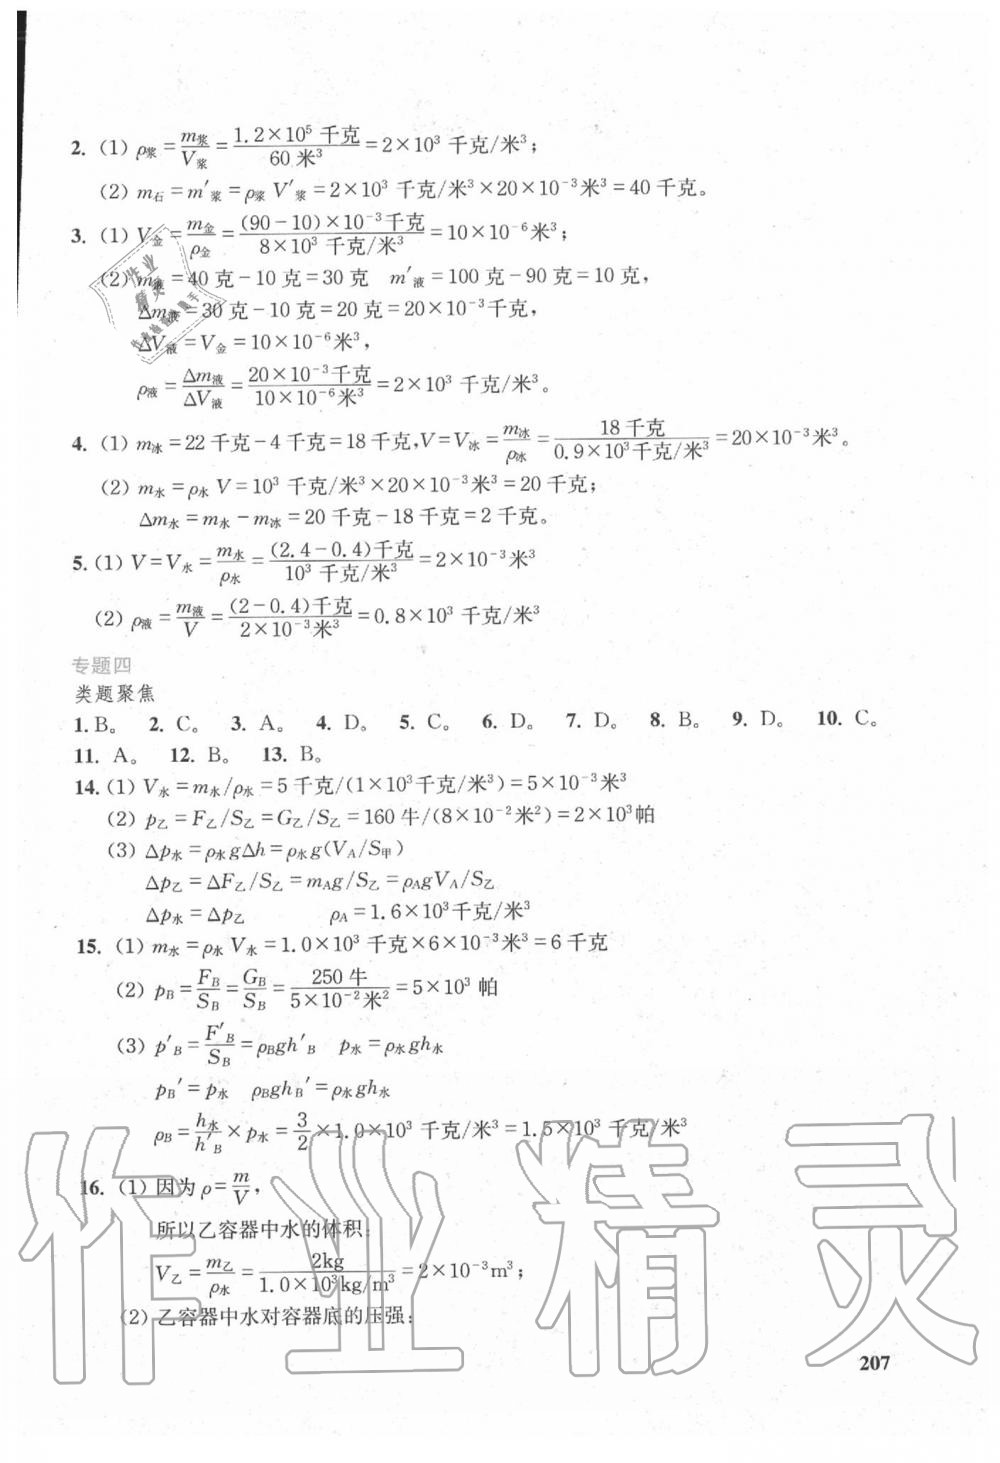 2. (1) ρ浆 = m浆/V浆 = 1.2×10⁵ 千克/60 米³ = 2×10³ 千克/米³;
(2) m石 = m′浆 = ρ浆 V′浆 = 2×10³ 千克/米³×20×10⁻³米³ = 40 千克。
3. (1) V金 = m金/ρ金 = (90-10)×10⁻³千克/8×10³ 千克/米³ = 10×10⁻⁶米³;
(2) m液 = 40 克-10 克 = 30 克 m′液 = 100 克-90 克 = 10 克,
Δm液 = 30 克-10 克 = 20 克 = 20×10⁻³千克,
ΔV液 = V金 = 10×10⁻⁶米³,
ρ液 = Δm液/ΔV液 = 20×10⁻³千克/10×10⁻⁶米³ = 2×10³ 千克/米³。
4. (1) m冰 = 22 千克-4 千克 = 18 千克,V = V冰 = m冰/ρ冰 = 18 千克/0.9×10³千克/米³ = 20×10⁻³米³。
(2) m水 = ρ水 V = 10³ 千克/米³×20×10⁻³米³ = 20 千克;
Δm水 = m水 - m冰 = 20 千克-18 千克 = 2 千克。
5. (1) V = V水 = m水/ρ水 = (2.4-0.4)千克/10³ 千克/米³ = 2×10⁻³米³
(2) ρ液 = m液/V = (2-0.4)千克/2×10⁻³米³ = 0.8×10³ 千克/米³
专题四
类题聚焦
1. B。 2. C。 3. A。 4. D。 5. C。 6. D。 7. D。 8. B。 9. D。 10. C。
11. A。 12. B。 13. B。
14. (1) V水 = m水/ρ水 = 5 千克/(1×10³千克/米³) = 5×10⁻³米³
(2) p乙 = F乙/S乙 = G乙/S乙 = 160 牛/(8×10⁻²米²) = 2×10³帕
(3) Δp水 = ρ水gΔh = ρ水g(VA/S甲)
Δp乙 = ΔF乙/S乙 = mAg/S乙 = ρAgVA/S乙
Δp水 = Δp乙 ρA = 1.6×10³千克/米³
15. (1) m水 = ρ水 V水 = 1.0×10³ 千克×6×10⁻³米³ = 6 千克
(2) pB = FB/SB = GB/SB = 250 牛/5×10⁻²米² = 5×10³ 帕
(3) p′B = F′B/SB = ρBgh′B p水 = ρ水gh水
pB′ = p水 ρBghB′ = ρ水gh水
ρB = h水/h′B × p水 = 3/2 ×1.0×10³ 千克/米³ = 1.5×10³ 千克/米³
16. (1) 因为 ρ = m/V,
所以乙容器中水的体积:
V乙 = m乙/ρ水 = 2kg/1.0×10³kg/m³ = 2×10⁻³m³;
(2) 乙容器中水对容器底的压强:
207
作业精灵